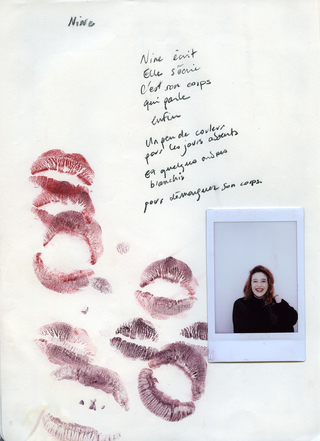 Nine
Nine écrit
Elle
C'est son corps
qui parle
enfin
Un peu de couleur
pour les jours absents
quelques
blanchis
pour démarquer son corps.